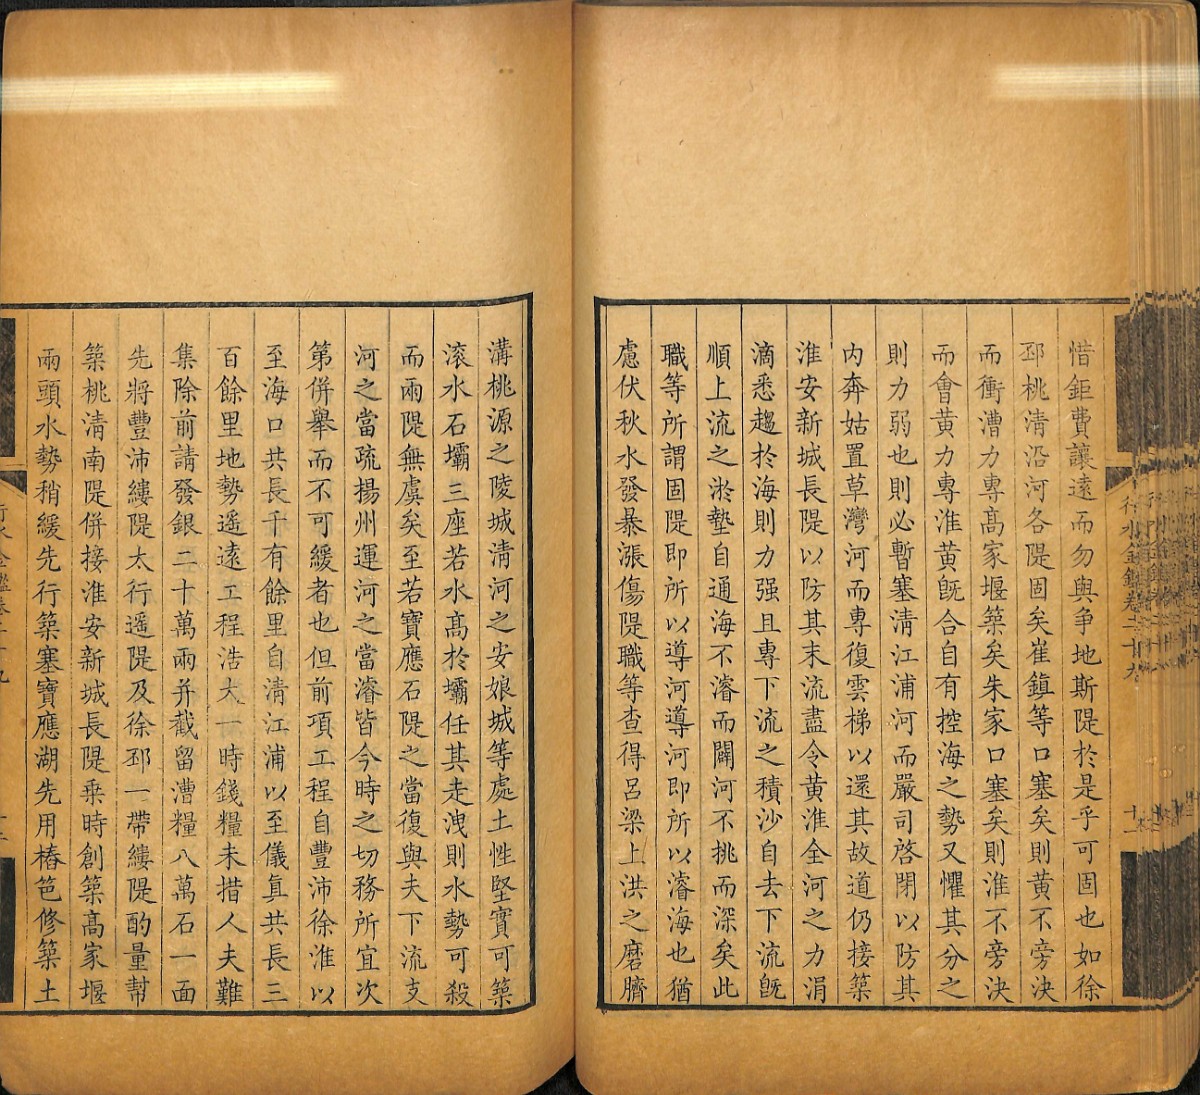 惜鉅費讓遠而勿與争地斯隄於是乎可固也如徐
邳桃清沿河各隄固矣崔鎮等口塞矣則黄不旁決
而衝漕力專髙家堰築矣朱家口塞矣則淮不旁決
而會黄力專淮黄旣合自有控海之勢又懼其分之
則力弱也則必暫塞清江浦河而嚴司啓閉以防其
内奔姑置草灣河而專復雲梯以還其故道仍接築
淮安新城長隄以防其末流盡令黄淮全河之力涓
滴悉趨於海則力强且專下流之積沙自去下流旣
順上流之淤墊自通海不濬而闢河不挑而深矣此
職等所謂固隄即所以導河導河即所以濬海也猶
慮伏秋水發暴漲傷隄職等查得呂梁上洪之磨臍
行水金鑑卷二十九
十二
溝桃源之陵城清河之安娘城等處土性堅實可築
滚水石壩三座若水髙於壩任其走洩則水勢可殺
而兩隄無虞矣至若寶應石隄之當復與夫下流支
河之當疏揚州運河之當濬皆今時之切務所宜次
第併舉而不可緩者也但前項工程自豐沛徐淮以
至海口共長千有餘里自清江浦以至儀眞共長三
百餘里地勢遥遠工程浩大一時錢糧未措人夫難
集除前請發銀二十萬兩并截留漕糧八萬石一面
先將豐沛縷隄太行遥隄及徐邳一帶縷隄酌量幇
築桃清南隄併接淮安新城長隄乗時創築髙家堰
兩頭水勢稍緩先行築塞寶應湖先用樁笆修築土